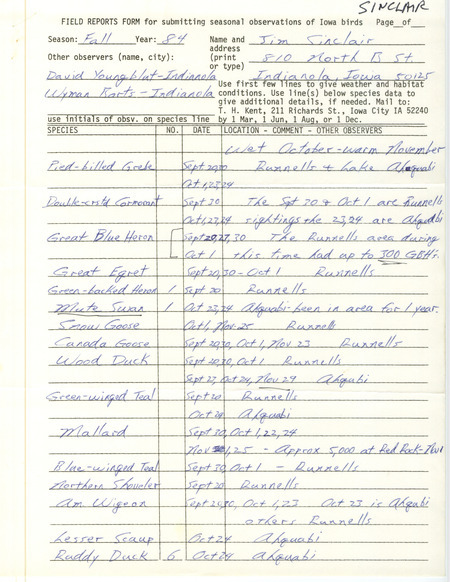 SINCLAIR
FIELD REPORTS FORM for submitting seasonal observations of Iowa birds Page__of__
Season: Fall Year: 84 Name and Jim Sinclair
address
Other observers (name, city): (print 810 North B St.
or type)
David Youngblut-Indianola Indianola, Iowa 50125
Use first few lines to give weather and habitat
Wyman Rorts-Indianola conditions. Use line(s) below species data to
give additional details, if needed. Mail to:
T. H. Kent, 211 Richards St., Iowa City IA 52240
use initials of obsv. on species line by 1 Mar, 1 Jun, 1 Aug, or 1 Dec.
SPECIES NO. DATE LOCATION - COMMENT - OTHER OBSERVERS
Wet October-warm November
Pied-billed Grebe Sept 20,30 Runnells & Lake Ahquabi
Oct 1,23,24
Double-crstd Cormorant Sept 30 The Spt 30 & Oct 1 are Runnells
Oct 1,23,24 sightings the 23,24 are Ahquabi
Great Blue Heron Sept 20,27,30 The Runnells area during
Oct 1 this time had up to 300 GBH's
Great Egret Sept 20,30-Oct 1 Runnells
Green-backed Heron 1 Sept 20 Runnells
Mute Swan 1 Oct 23,24 Ahquabi-been in area for 1 year.
Snow Goose Oct 1, Nov 25 Runnells
Canada Goose Sept 20,30, Oct 1, Nov 23 Runnells
Wood Duck Sept 20,30, Oct 1 Runnells
Sept 23, Oct 24, Nov 29 Ahquabi
Green-winged Teal Sept 20 Runnells
Oct 24 Ahquabi
Mallard Sept 30, Oct 1,23,24
Nov 1,25 - Approx 5,000 at Red Rock-Nov 1
Blue-winged Teal Sept 30, Oct 1 - Runnells
Northern Shoveler Sept 20 Runnells
Am. Wigeon Sept 20,30, Oct 1,23 Oct 23 is Ahquabi
others Runnells
Lesser Scaup Oct 24 Ahquabi
Ruddy Duck 6 Oct 24 Ahquabi